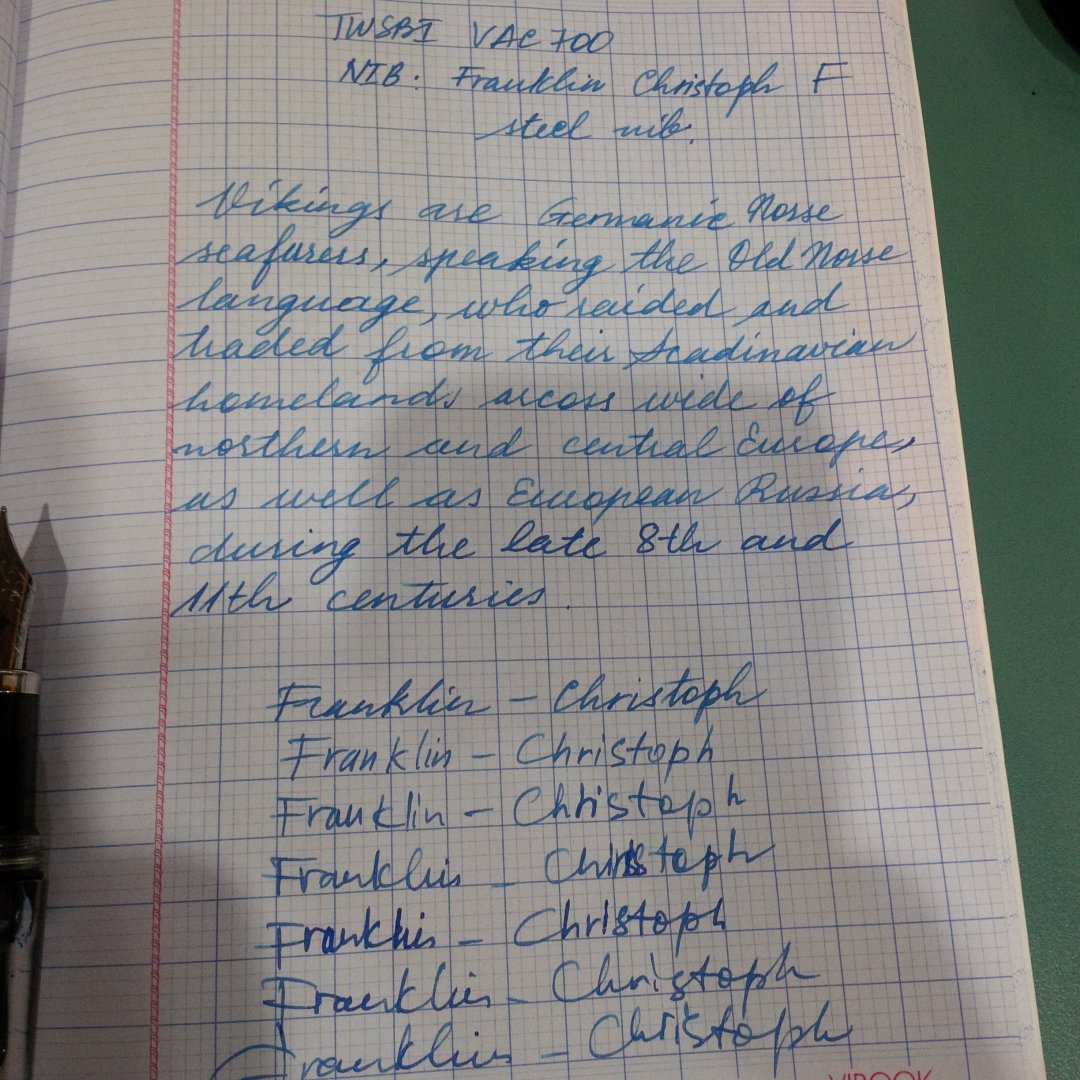 TWSBI VAC 700
NIB: Franklin Christoph F
steel nib.
Vikings are Germanic Norse
seafarers, speaking the Old Norse
language, who raided and
traded from their Scadinavian
homelands across wide of
northern and central Europe,
as well as European Russia,
during the late 8th and
11th centuries.
Franklin - Christoph
Franklin - Christoph
Franklin - Christoph
Franklin - Christoph
Franklin - Christoph
Franklin - Christoph
Franklin - Christoph